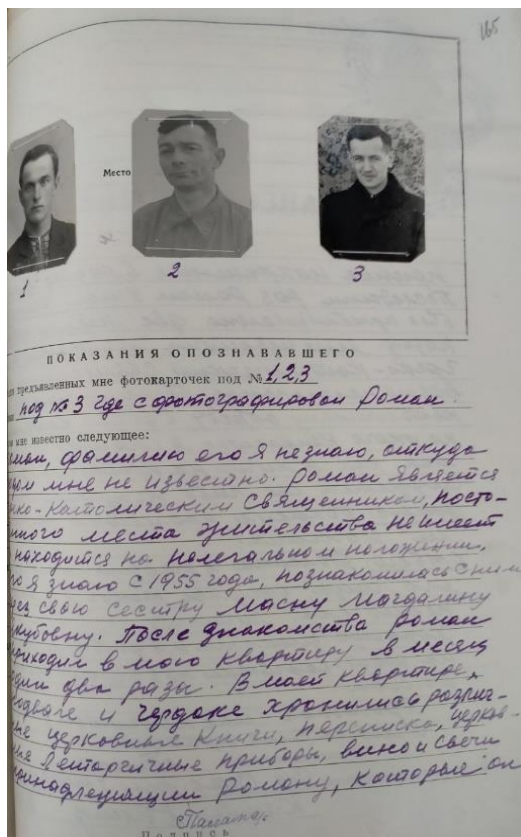 165
Место
1
2
3
ПОКАЗАНИЯ ОПОЗНАВАВШЕГО
предъявленных мне фотокарточек под № 1,2,3
под № 3 где сфотографирован Роман
мне известно следующее:
фамилию его я не знаю, откуда
мне не известно. Роман является
-католическим священником, посто-
места жительства не имеет
находится на нелегальном положении.
я знаю с 1955 года, познакомилась с ним
свою сестру Масну Магдалину
После знакомства Роман
приходил в мою квартиру в месяц
два разы. В моей квартире,
и чердаке хранились различ-
церковные книги, переписка, церков-
приборы, вино и свечи
Роману, которые он
Подпись